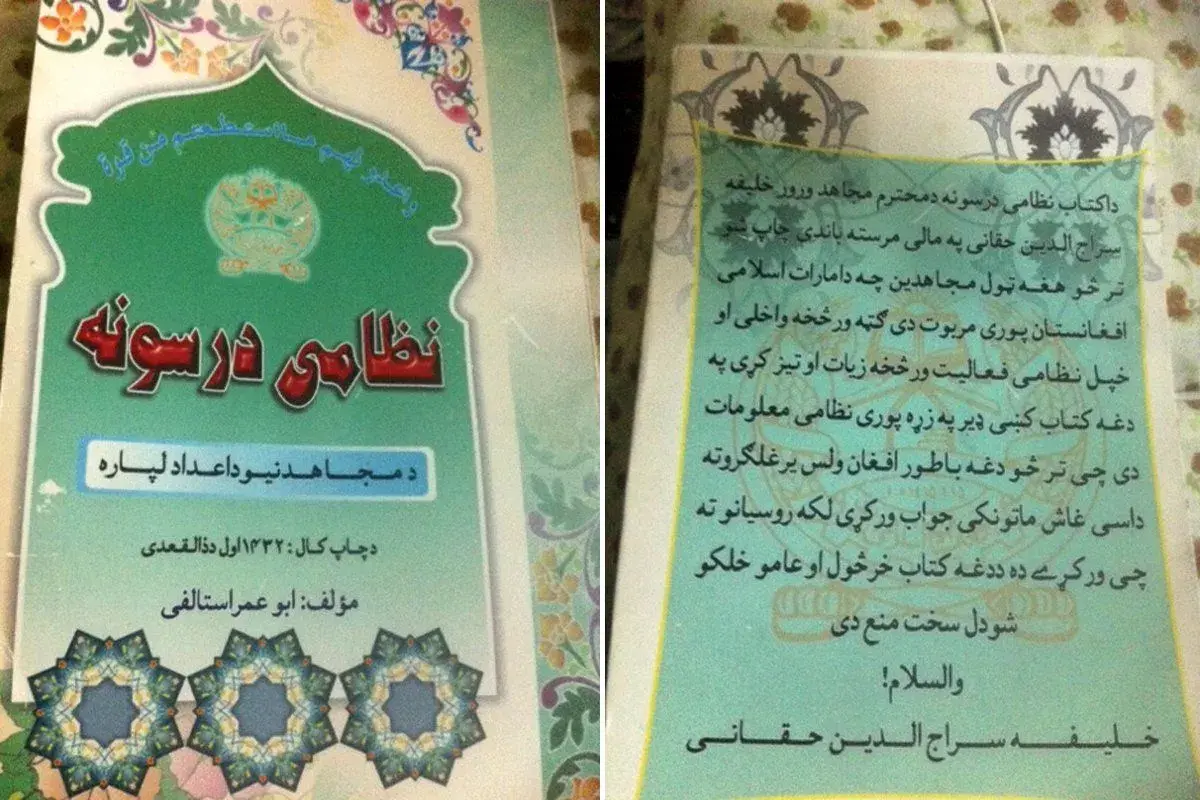 واعدوا لهم ما استطعتم من قوة
نظامی درسونه
د مجاهدنیو داعداد لپاره
دچاپ کال: ۱۴۳۲ اول دذالقعدی
مؤلف: ابو عمر استالفی
داکتاب نظامی درسونه دمحترم مجاهد ورور خلیفه
سراج الدین حقانی په مالی مرسته باندی چاپ شو
تر څو هغه ټول مجاهدین چه دامارات اسلامی
افغانستان پوری مربوت دی گټه ورڅخه واخلی او
خپل نظامی فعالیت ورڅخه زیات او تیز کړی په
دغه کتاب کښی ډیر په زړه پوری نظامی معلومات
دی چی تر څو دغه باطور افغان ولس یرغلگروته
داسی غاش ماتونکی جواب ورکړی لکه روسیانو ته
چی ورکړے ده ددغه کتاب خرڅول او عامو خلکو
شودل سخت منع دی
والسلام!
خلیفه سراج الدین حقانی